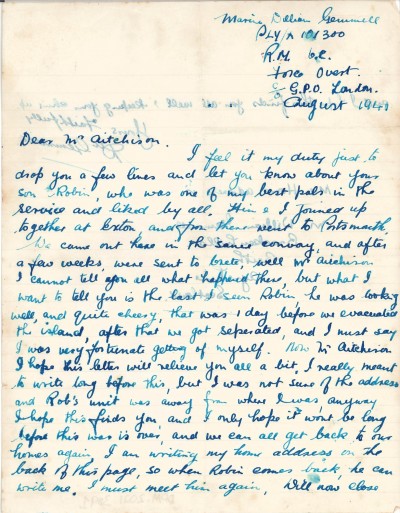 Marine William Gemmell
PLY/X 101300
R.M. 
Force Overt.
c/o G.P.O. London.
August 1941
Dear Mr Aitchison.
I feel it my duty just to
drop you a few lines and let you know about your
son Robin, who was one of my best pals in the
service and liked by all, him & I Joined up
together at Exton, and from there went to Portsmouth,
We came out here in the same convoy, and after
a few weeks, were sent to Crete, well Mr Aitchison
I cannot tell you all what happened there, but what I
want to tell you is the last I seen Robin he was looking
well, and quite cheery, that was 1 day before we evacuated
the island, after that we got seperated, and I must say
I was very fortunate getting of myself. Now Mr Aitchison
I hope this letter will relieve you all a bit, I really meant
to write long before this, but I was not sure of the address
and Rob's unit was away from where I was anyway
I hope this finds you, and I only hope it wont be long
before this war is over, and we can all get back to our
homes again, I am writing my home address on the
back of this page, so when Robin comes back, he can
write me. I must meet him again, Will now close